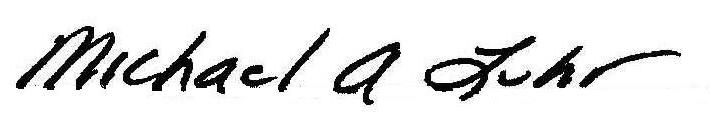 Michael A Luhr